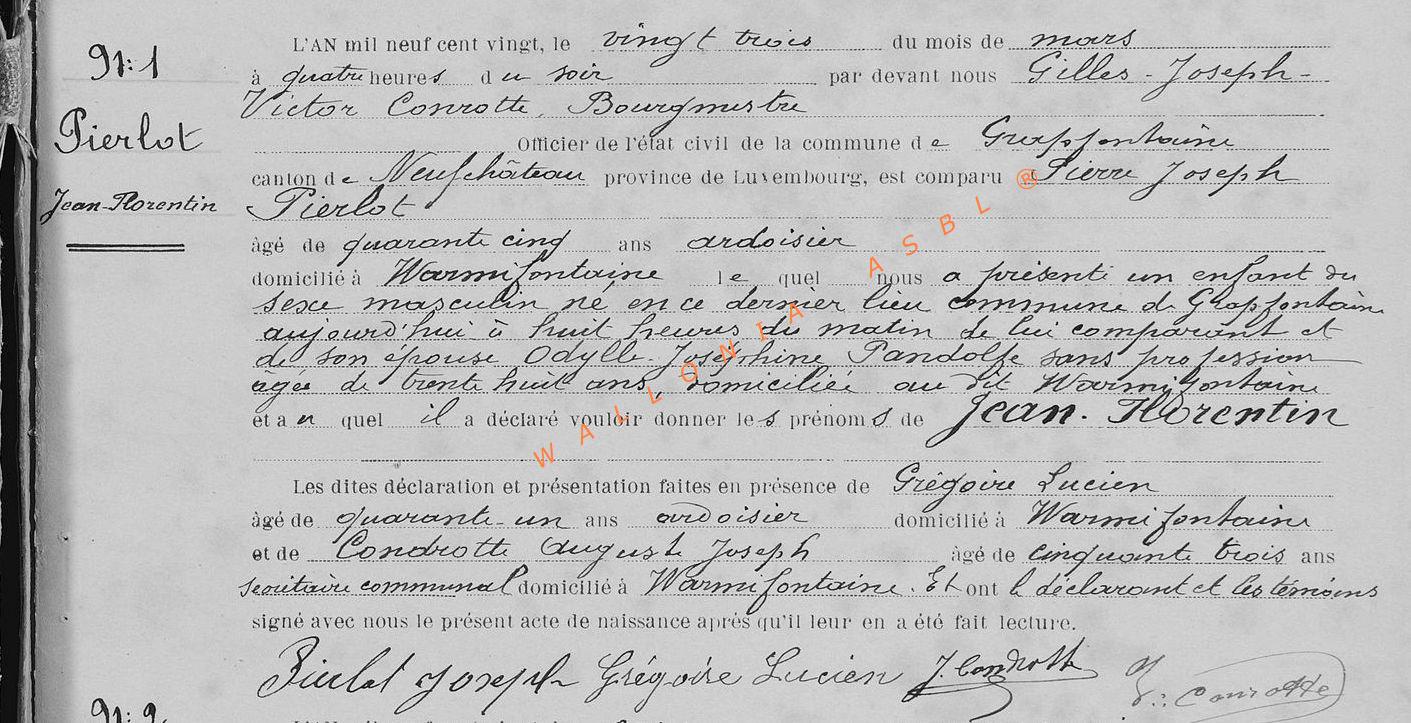 N: 1
L'AN mil neuf cent vingt, le vingt trois du mois de mars
à quatre heures du soir par devant nous Gilles - Joseph -
Victor Conrotte, Bourgmestre
Pierlot
Officier de l'état civil de la commune de Grapfontaine
canton de Neufchâteau province de Luxembourg, est comparu Pierre Joseph
Jean-Florentin
Pierlot
âgé de quarante cinq ans ardoisier
domicilié à Warmifontaine lequel nous a présenté un enfant du
sexe masculin né en ce dernier lieu commune de Grapfontaine
aujourd'hui à huit heures du matin de lui comparant et
de son épouse Odylle-Joséphine Pandolfe sans profession
âgée de trente huit ans, domiciliée au dit Warmifontaine
et au quel il a déclaré vouloir donner les prénoms de Jean-Florentin
WALLONIA ASBL ®
Les dites déclaration et présentation faites en présence de Grégoire Lucien
âgé de quarante-un ans ardoisier domicilié à Warmifontaine
et de Condrotte Auguste Joseph âgé de cinquante trois ans
secrétaire communal domicilié à Warmifontaine. Et ont le déclarant et les témoins
signé avec nous le présent acte de naissance après qu'il leur en a été fait lecture.
Pierlot Joseph Grégoire Lucien J. Condrotte Conrotte
N: 2